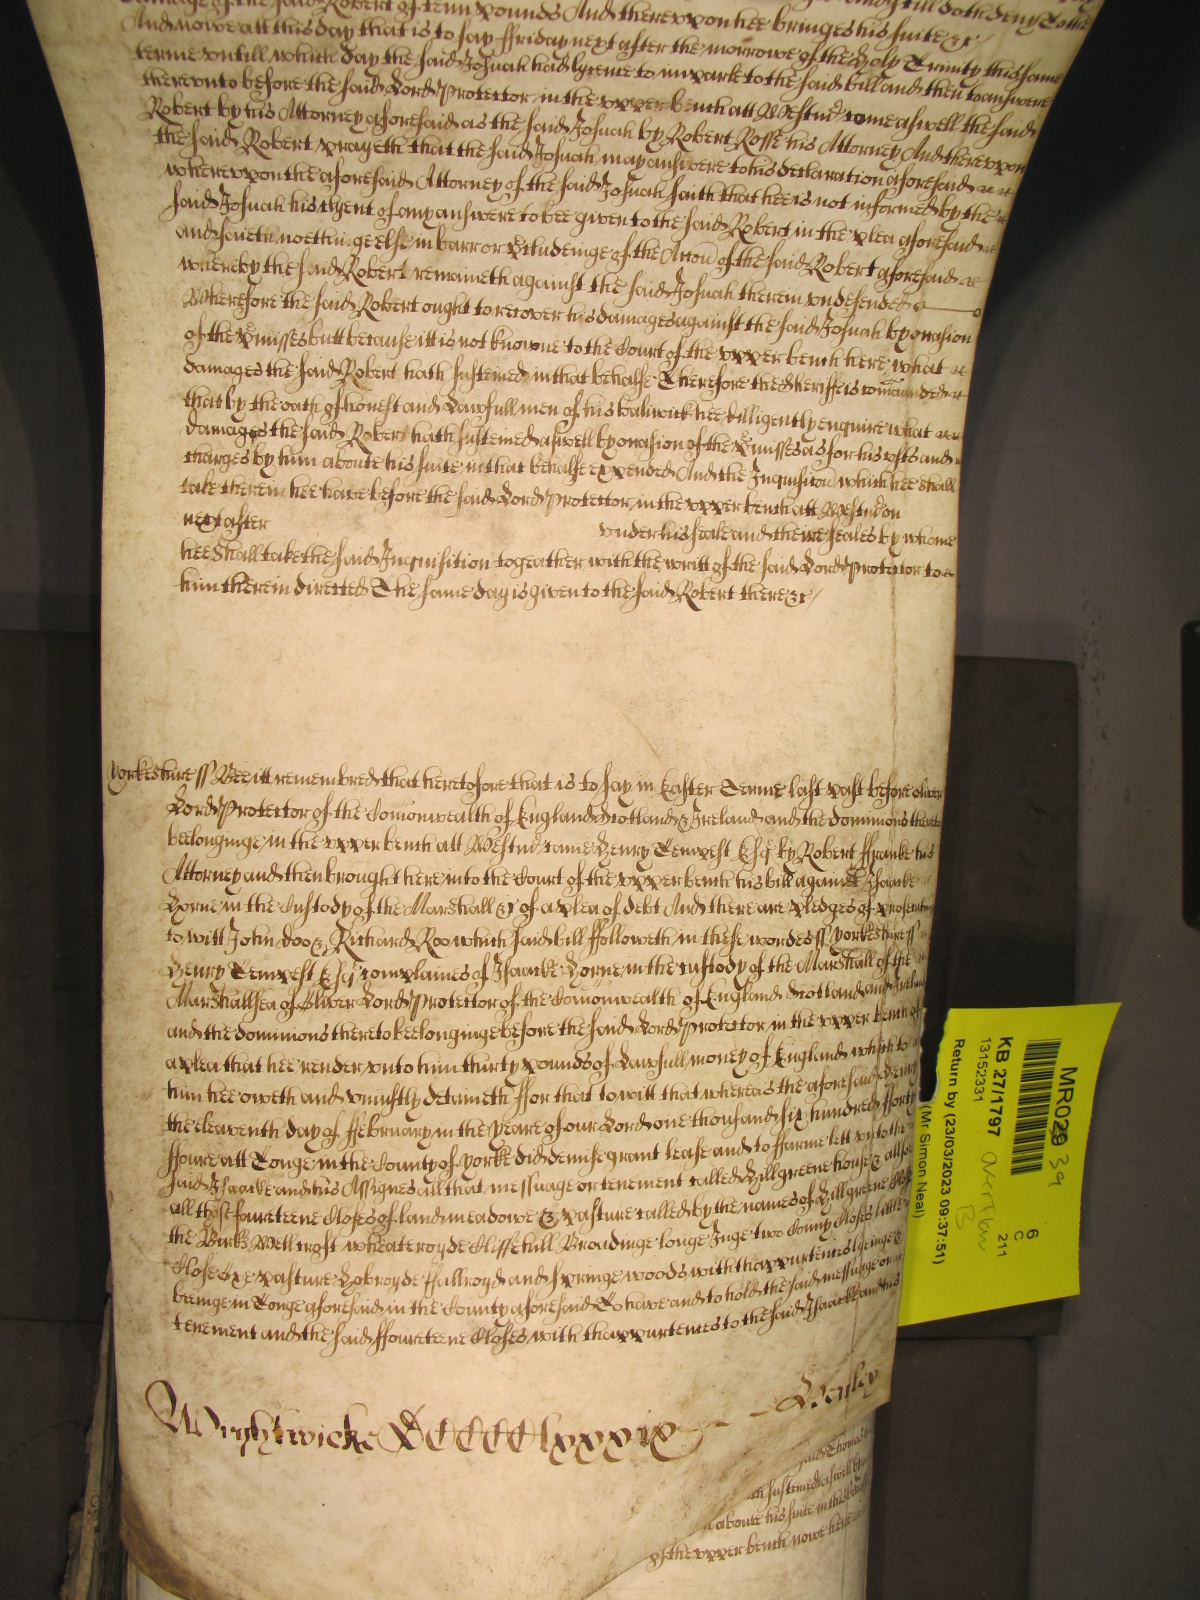 damage of the said Robert of tenn pounds And thereuppon hee bringes his suite &c/
And nowe att this day that is to say ffriday next after the morrowe of the Holy Trinity this same
terme untill which day the said Josuah had lycence to imparle to the said bill and then to answere
thereunto before the said Lord Protector in the upper bench att Westmr come aswell the said
Robert by his Attorney aforesaid as the said Josuah by Robert Rosse his Attorney And thereuppon
the said Robert prayeth that the said Josuah may answere to his declaration aforesaid
whereuppon the aforesaid Attorney of the said Josuah saith that hee is not informed by the
said Josuah his clyent of any answere to bee given to the said Robert in the plea aforesaid
and saieth noethinge else in barr or pcludeinge of the Accon of the said Robert aforesaid
whereby the said Robert remaineth against the said Josuah therein undefended
Wherefore the said Robert ought to recover his damages against the said Josuah by occasion
of the pmisses butt because itt is not knowne to the Court of the upper bench here what
damages the said Robert hath susteined in that behalfe Therefore the Sheriffe is comanded
that by the oath of honest and Lawfull men of his baliwick hee dilligently enquire what
damages the said Robert hath susteined aswell by occasion of the pmisses as for his costs and
charges by him aboute his suite in that behalfe expended And the Inquisicon which hee shall
take therein hee have before the said Lord Protector in the upper bench att Westmr on
next after under his seale and theire seales by whome
hee shall take the said Inquisition togeather with the writt of the said Lord Protector to
him therein directed The same day is given to the said Robert there &c/
Yorkeshire ss Bee itt remembred that heretofore that is to say in Easter Terme last past before Oliver
Lord Protector of the Comonwealth of England Scotland & Ireland and the dominions thereto
beelonginge in the upper bench att Westmr came Henry Tempest Esq by Robert ffranke his
Attorney and then brought here into the Court of the upper bench his bill against Isaacke
Horne in the Custody of the Marshall &c of a plea of debt And there are pledges of prosecuting
to witt John Doo & Richard Roo which said bill ffolloweth in these wordes ss Yorkeshire ss
Henry Tempest Esq complaines of Isaacke Horne in the custody of the Marshall of the
Marshallsea of Oliver Lord Protector of the Comonwealth of England Scotland and Ireland
and the dominions thereto beelonginge before the said Lord Protector in the upper bench of
a plea that hee render unto him thirty pounds of Lawfull money of England which to
him hee oweth and uniustly detaineth ffor that to witt that whereas the aforesaid Henry
the eleaventh day of ffebruary in the yeare of our Lord one thousand six hundred fforty
ffoure att Tonge in the County of Yorke did demise grant lease and to ffarme lett unto the
said Isaacke and his Assignes all that messuage or tenement called Hillgreene house & allsoe
all those foureteene Closes of land meadowe & pasture called by the names of Hillgreene Close
the Birks Well croft wheateroyde Cliffe hill Broadinge longe Inge two Conny Closes little
Close Oxe pasture Hobroyde ffallroyd and Springe woods with thappurtences lyeinge &
beeinge in Tonge aforesaid in the County aforesaid To have and to hold the said messuage or
tenement and the said ffoureteene Closes with thappurtences to the said Isaacke and his
Wightwicke DCCCCClxxxix Henley
said Thomas
susteined aswell by
aboute his suite in that behalfe
of the upper bench nowe here
MR029 39
KB 27/1797
13152331
Overflow
B
6
C
211
Return by (23/03/2023 09:37:51)
(Mr Simon Neal)